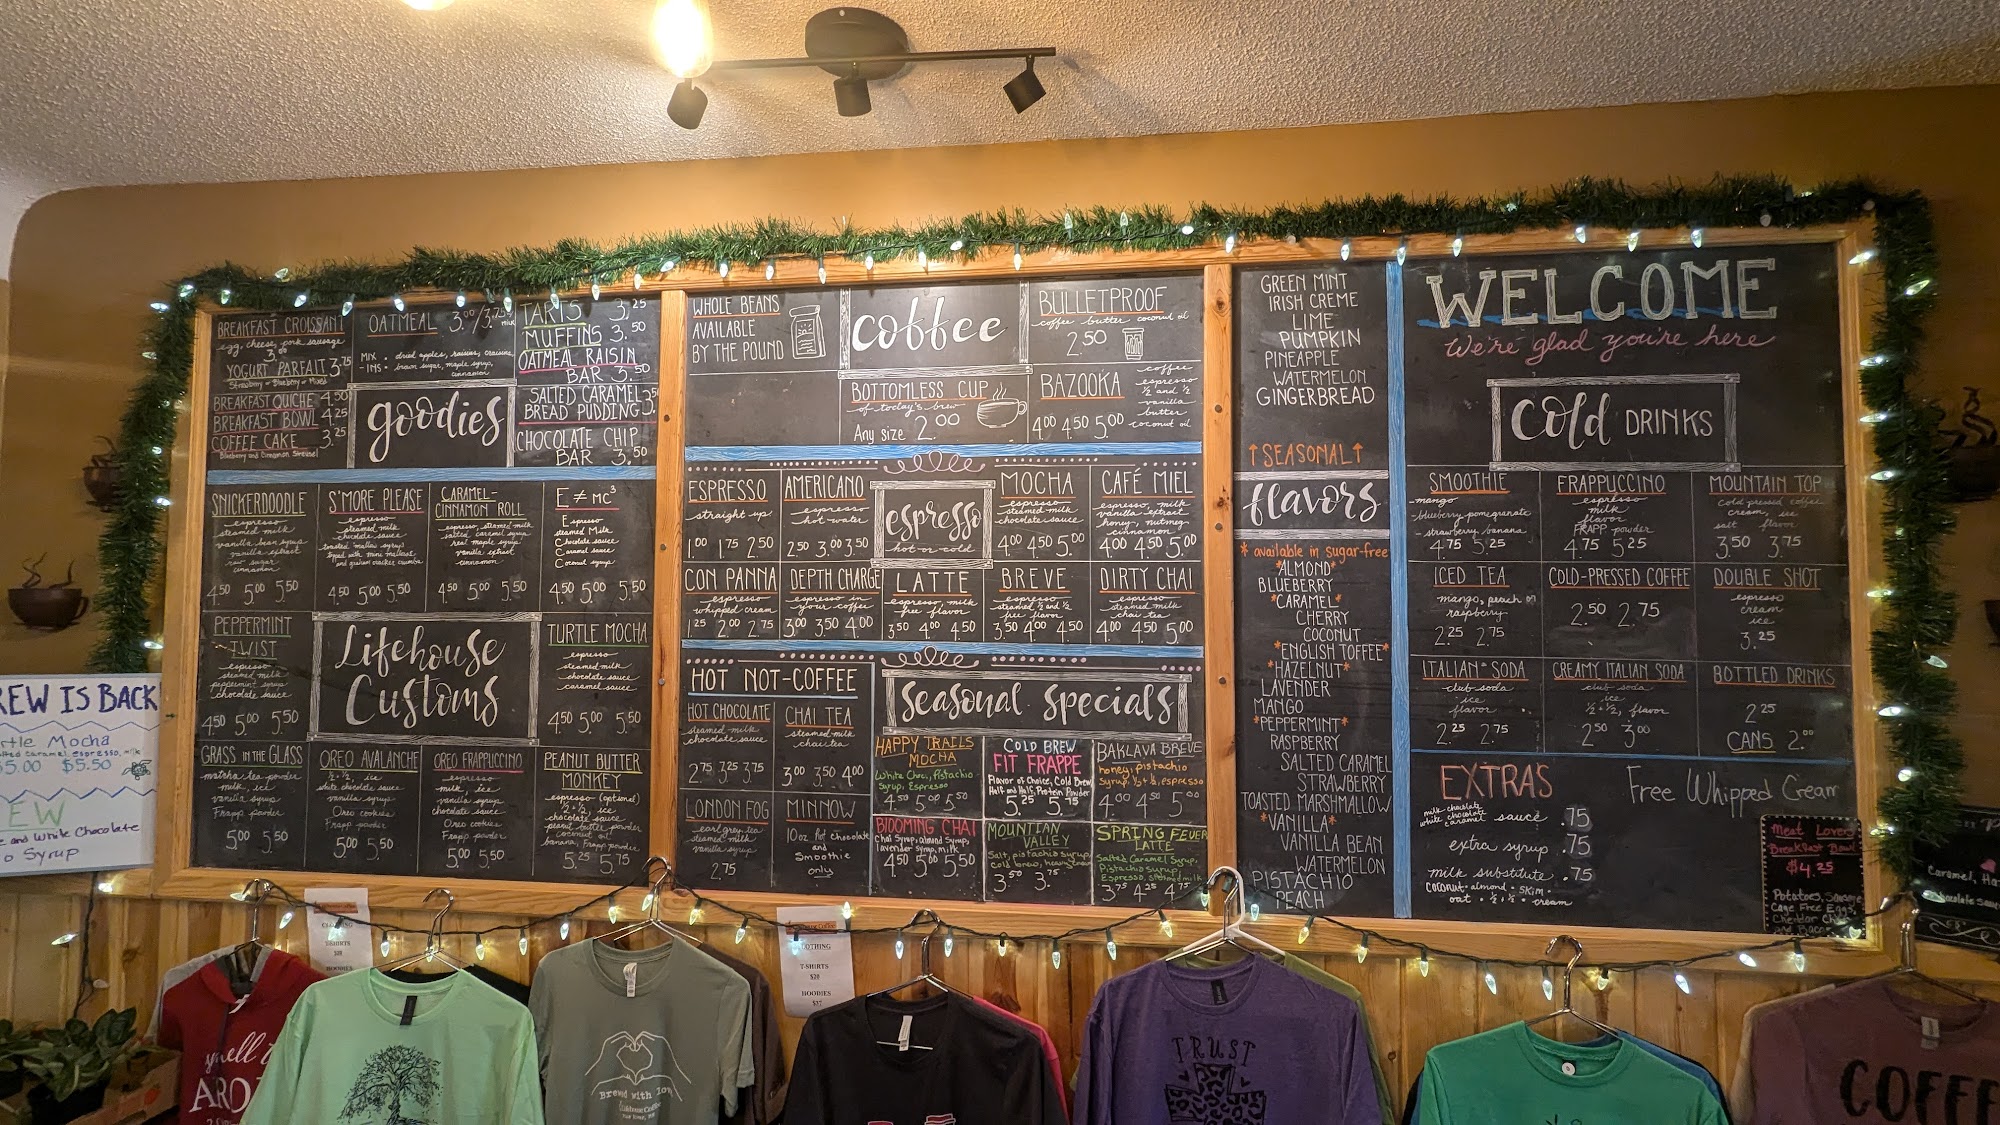 BREAKFAST CROISSANT
egg, cheese, pork sausage
3.00
YOGURT PARFAIT 3.75
Strawberry or Blueberry or Mixed
BREAKFAST QUICHE 4.50
BREAKFAST BOWL 4.25
COFFEE CAKE 3.25
Blueberry and Cinnamon Streusel
OATMEAL 3.00/3.75 milk
MIX - dried apples, raisins, craisins,
-INS - brown sugar, maple syrup,
cinnamon
goodies
TARTS 3.25
MUFFINS 3.50
OATMEAL RAISIN
BAR 3.50
SALTED CARAMEL
BREAD PUDDING
CHOCOLATE CHIP
BAR 3.50
SNICKERDOODLE
espresso
steamed milk
vanilla bean syrup
vanilla extract
raw sugar
cinnamon
4.50 5.00 5.50
S'MORE PLEASE
espresso
steamed milk
chocolate sauce
toasted mallow syrup
topped with mini mallows
and graham cracker crumbs
4.50 5.00 5.50
CARAMEL-
CINNAMON ROLL
espresso, steamed milk
salted caramel syrup
real maple syrup
vanilla extract
cinnamon
4.50 5.00 5.50
E ≠ MC³
Espresso
steamed Milk
Chocolate sauce
Caramel sauce
Coconut syrup
4.50 5.00 5.50
PEPPERMINT
TWIST
espresso
steamed milk
peppermint syrup
chocolate sauce
4.50 5.00 5.50
Lifehouse
Customs
TURTLE MOCHA
espresso
steamed milk
chocolate sauce
caramel sauce
4.50 5.00 5.50
GRASS IN THE GLASS
matcha tea powder
milk, ice
vanilla syrup
Frapp powder
5.00 5.50
OREO AVALANCHE
½+½, ice
white chocolate sauce
vanilla syrup
Oreo cookies
Frapp powder
5.00 5.50
OREO FRAPPUCCINO
espresso
milk, ice
vanilla syrup
chocolate sauce
Oreo cookies
Frapp powder
5.00 5.50
PEANUT BUTTER
MONKEY
espresso (optional)
½+½, ice
chocolate sauce
peanut butter powder
coconut oil
banana, Frapp powder
5.25 5.75
WHOLE BEANS
AVAILABLE
BY THE POUND
coffee
BULLETPROOF
coffee butter coconut oil
2.50
BOTTOMLESS CUP
of today's brew
Any size 2.00
BAZOOKA
coffee
espresso
½ and ½
vanilla
butter
coconut oil
4.00 4.50 5.00
ESPRESSO
straight up
1.00 1.75 2.50
AMERICANO
espresso
hot water
2.50 3.00 3.50
espresso
hot or cold
MOCHA
espresso
steamed milk
chocolate sauce
4.00 4.50 5.00
CAFÉ MIEL
espresso, milk
vanilla extract
honey, nutmeg
cinnamon
4.00 4.50 5.00
CON PANNA
espresso
whipped cream
1.25 2.00 2.75
DEPTH CHARGE
espresso in
your coffee
3.00 3.50 4.00
LATTE
espresso, milk
free flavor
3.50 4.00 4.50
BREVE
espresso
steamed ½ and ½
free flavor
3.50 4.00 4.50
DIRTY CHAI
espresso
steamed milk
chai tea
4.00 4.50 5.00
HOT NOT-COFFEE
HOT CHOCOLATE
steamed milk
chocolate sauce
2.75 3.25 3.75
CHAI TEA
steamed milk
chai tea
3.00 3.50 4.00
LONDON FOG
earl grey tea
steamed milk
vanilla syrup
2.75
MINNOW
10oz Hot Chocolate
and
Smoothie
only
seasonal specials
HAPPY TRAILS
MOCHA
White Choc, Pistachio
Syrup, Espresso
4.50 5.00 5.50
COLD BREW
FIT FRAPPE
Flavor of Choice, Cold Brew
Half and Half, Protein Powder
5.25 5.75
BAKLAVA BREVE
honey, pistachio
syrup, ½+½, espresso
4.00 4.50 5.00
BLOOMING CHAI
Chai Syrup, almond Syrup,
lavender syrup, milk
4.50 5.00 5.50
MOUNTAIN
VALLEY
Salt, pistachio syrup,
cold brew, heavy cream
3.50 3.75
SPRING FEVER
LATTE
Salted Caramel Syrup,
Pistachio Syrup,
Espresso, steamed milk
3.75 4.25 4.75
GREEN MINT
IRISH CREME
LIME
PUMPKIN
PINEAPPLE
WATERMELON
GINGERBREAD
↑SEASONAL↑
flavors
* available in sugar-free
*ALMOND*
BLUEBERRY
*CARAMEL*
CHERRY
COCONUT
*ENGLISH TOFFEE*
*HAZELNUT*
LAVENDER
MANGO
*PEPPERMINT*
RASPBERRY
SALTED CARAMEL
STRAWBERRY
TOASTED MARSHMALLOW
*VANILLA*
VANILLA BEAN
WATERMELON
PISTACHIO
PEACH
WELCOME
We're glad you're here
Cold DRINKS
SMOOTHIE
-mango
-blueberry-pomegranate
-strawberry banana
4.75 5.25
FRAPPUCCINO
espresso
milk
flavor
FRAPP powder
4.75 5.25
MOUNTAIN TOP
cold pressed coffee
cream, ice
salt flavor
3.50 3.75
ICED TEA
mango, peach or
raspberry
2.25 2.75
COLD-PRESSED COFFEE
2.50 2.75
DOUBLE SHOT
espresso
cream
ice
3.25
ITALIAN SODA
club soda
ice
flavor
2.25 2.75
CREAMY ITALIAN SODA
club soda
ice
½+½, flavor
2.50 3.00
BOTTLED DRINKS
2.25
CANS 2.00
EXTRAS
milk chocolate
white chocolate
caramel
sauce .75
extra syrup .75
milk substitute .75
coconut · almond · skim ·
oat · ½+½ · cream
Free Whipped Cream
Meat Lovers
Breakfast Bowl
$4.25
Potatoes, Sausage
Cage Free Eggs,
Cheddar
and Bacon
Caramel, Ha
chocolate sau
REW IS BACK
rtle Mocha
lted caramel, espresso, milk
$5.00 $5.50
EW
e and White Chocolate
o Syrup
CLOTHING
T-SHIRTS
HOODIES
CLOTHING
T-SHIRTS
$20
HOODIES
$37
smell
ARO
Brewed with love
TRUST
COFFE